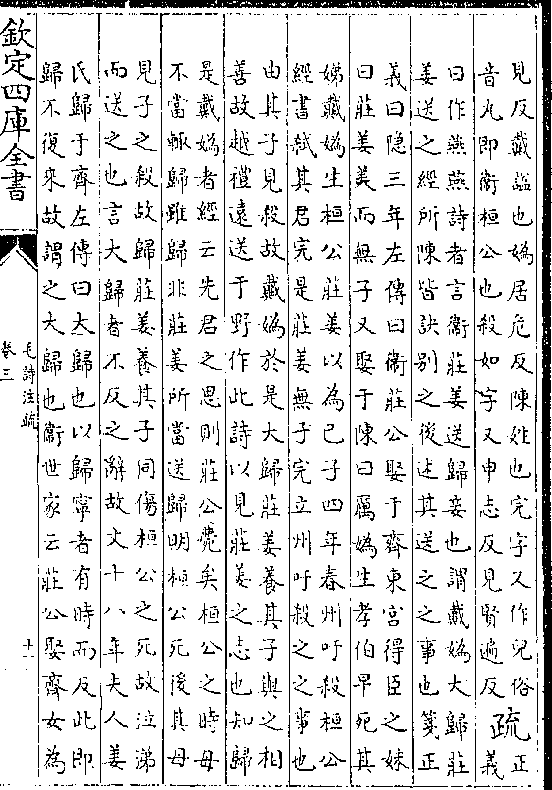 見反戴諡也嬀居危反陳姓也完字又作皃俗
音丸即衛桓公也殺如字又申志反見賢遍反
疏
正
義
曰作燕燕詩者言衛莊姜送歸妾也謂戴嬀大歸莊
姜送之經所陳皆訣別之後述其送之之事也箋正
義曰隱三年左傳曰衛莊公娶于齊東宮得臣之妹
曰莊姜美而無子又娶于陳曰厲嬀生孝伯早死其
娣戴嬀生桓公莊姜以為己子四年春州吁殺桓公
經書弑其君完是莊姜無子完立州吁殺之之事也
由其子見殺故戴嬀於是大歸莊姜養其子與之相
善故越禮遠送于野作此詩以見莊姜之志也知歸
是戴嬀者經云先君之思則莊公薨矣桓公之時母
不當輒歸雖歸非莊姜所當送歸明桓公死後其母
見子之殺故歸莊姜養其子同傷桓公之死故泣涕
而送之也言大歸者不反之辭故文十八年夫人姜
氏歸于齊左傳曰大歸也以歸寧者有時而反此即
歸不復來故謂之大歸也衛世家云莊公娶齊女為
欽定四庫全書
毛詩注疏
卷三
十一